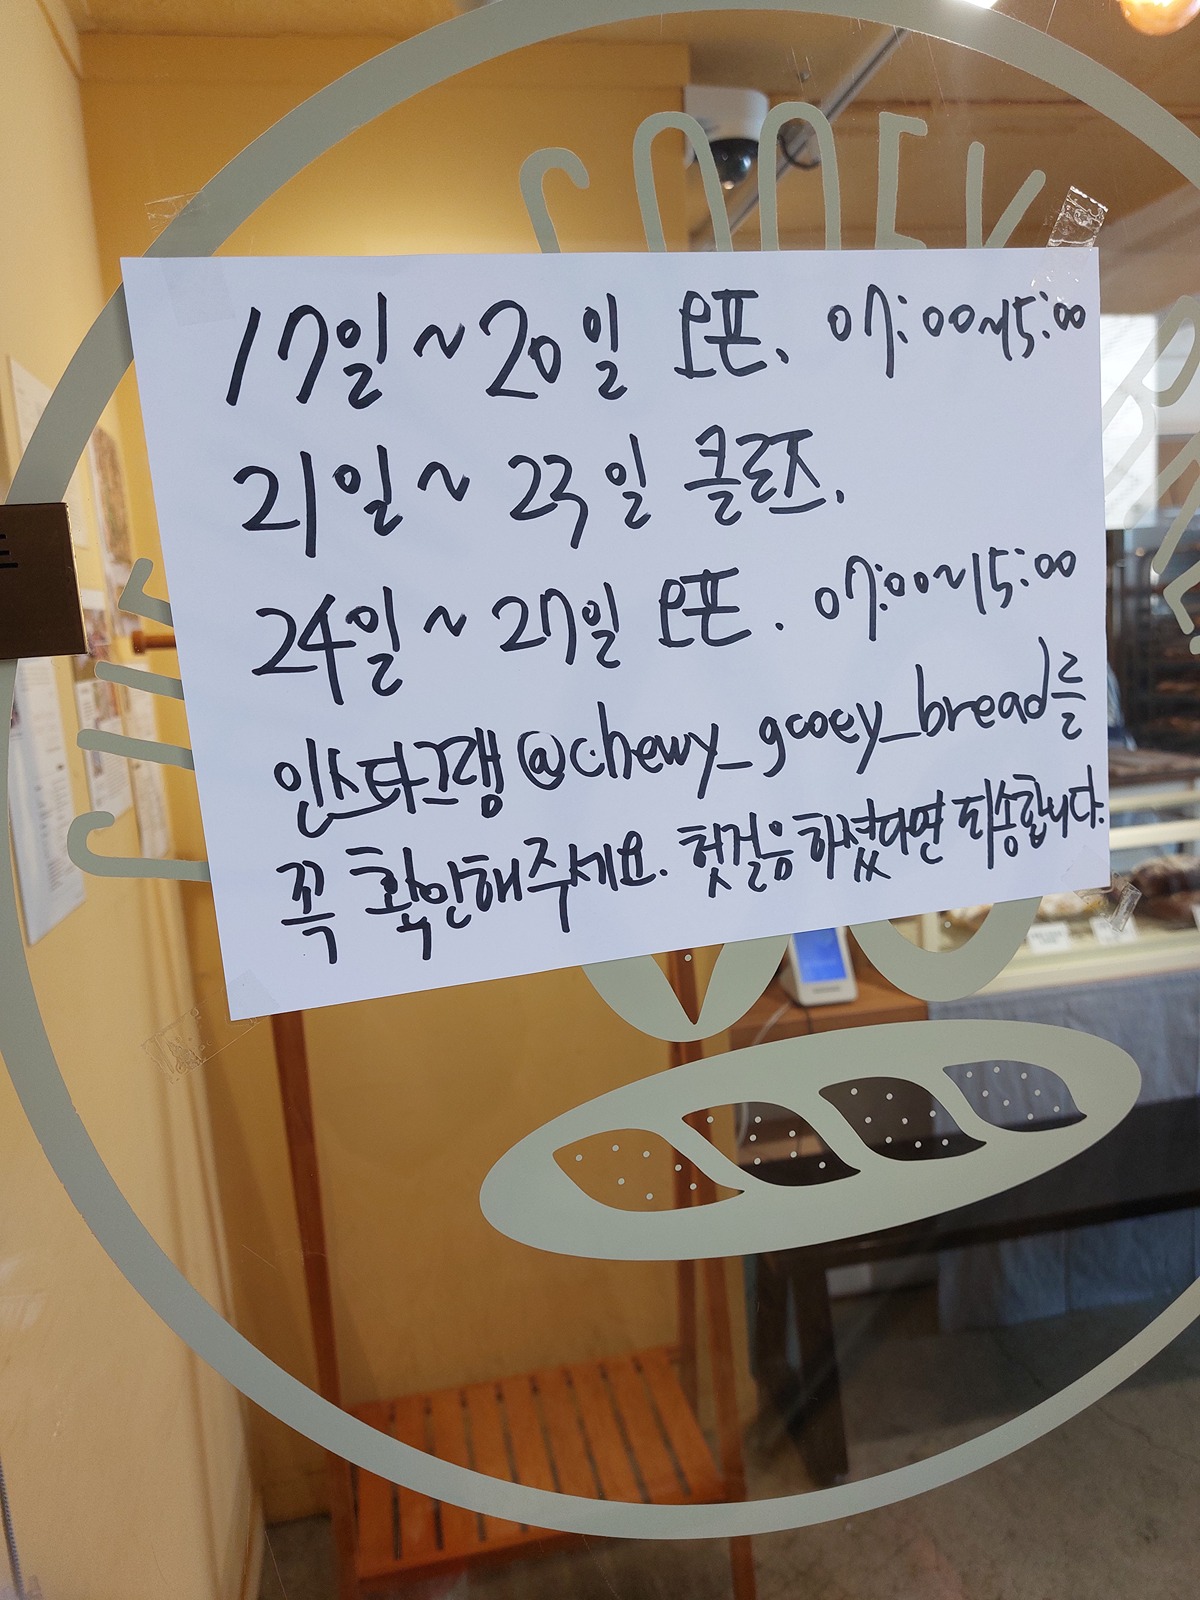 GOOEY
17일 ~ 20일 오픈. 07:00~15:00
21일 ~ 23일 클로즈.
24일 ~ 27일 오픈. 07:00~15:00
인스타그램 @chewy_gooey_bread를
꼭 확인해주세요. 헛걸음하셨다면 죄송합니다.